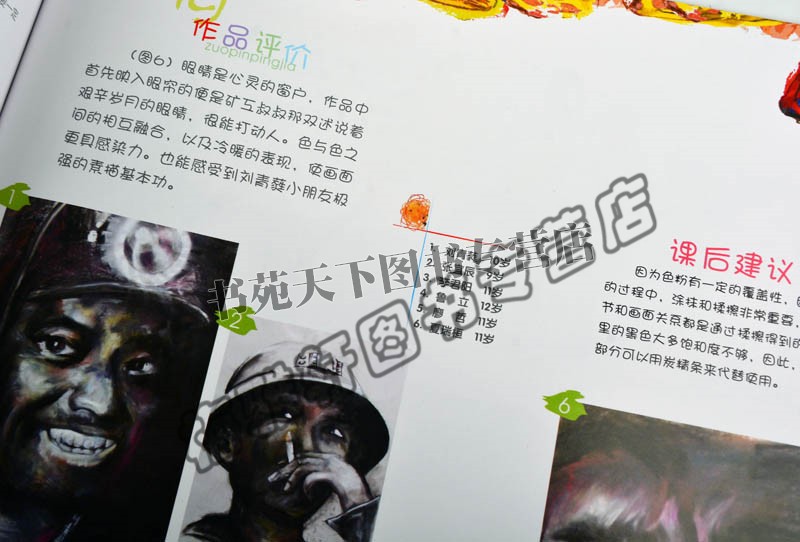 作品评价
zuopinpingjia
（图6）眼睛是心灵的窗户，作品中
首先映入眼帘的便是矿工叔叔那双述说着
艰辛岁月的眼睛，很能打动人。色与色之
间的相互融合，以及冷暖的表现，使画面
更具感染力。也能感受到刘青蕤小朋友极
强的素描基本功。
1
2
1. 刘青蕤 10岁
2. 辰 9岁
3. 阳 11岁
4. 鲁 立 12岁
5. 廖 哲 11岁
6. 夏瑞恒 11岁
书苑天下图书专营店
图书专营店
课后建议
因为色粉有一定的覆盖性，
的过程中，涂抹和揉擦非常重要，
节和画面关系都是通过揉擦得到的
里的黑色大多饱和度不够，因此，
部分可以用炭精条来代替使用。
6